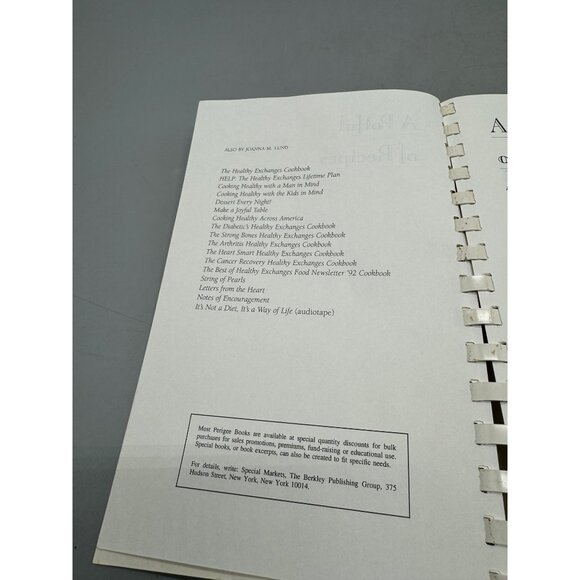 ALSO BY JOANNA M. LUND
The Healthy Exchanges Cookbook
HELP: The Healthy Exchanges Lifetime Plan
Cooking Healthy with a Man in Mind
Cooking Healthy with the Kids in Mind
Dessert Every Night!
Make a Joyful Table
Cooking Healthy Across America
The Diabetic's Healthy Exchanges Cookbook
The Strong Bones Healthy Exchanges Cookbook
The Arthritis Healthy Exchanges Cookbook
The Heart Smart Healthy Exchanges Cookbook
The Cancer Recovery Healthy Exchanges Cookbook
The Best of Healthy Exchanges Food Newsletter '92 Cookbook
String of Pearls
Letters from the Heart
Notes of Encouragement
It's Not a Diet, It's a Way of Life (audiotape)
Most Perigee Books are available at special quantity discounts for bulk
purchases for sales promotions, premiums, fund-raising or educational use.
Special books, or book excerpts, can also be created to fit specific needs.
For details, write: Special Markets, The Berkley Publishing Group, 375
Hudson Street, New York, New York 10014.
A